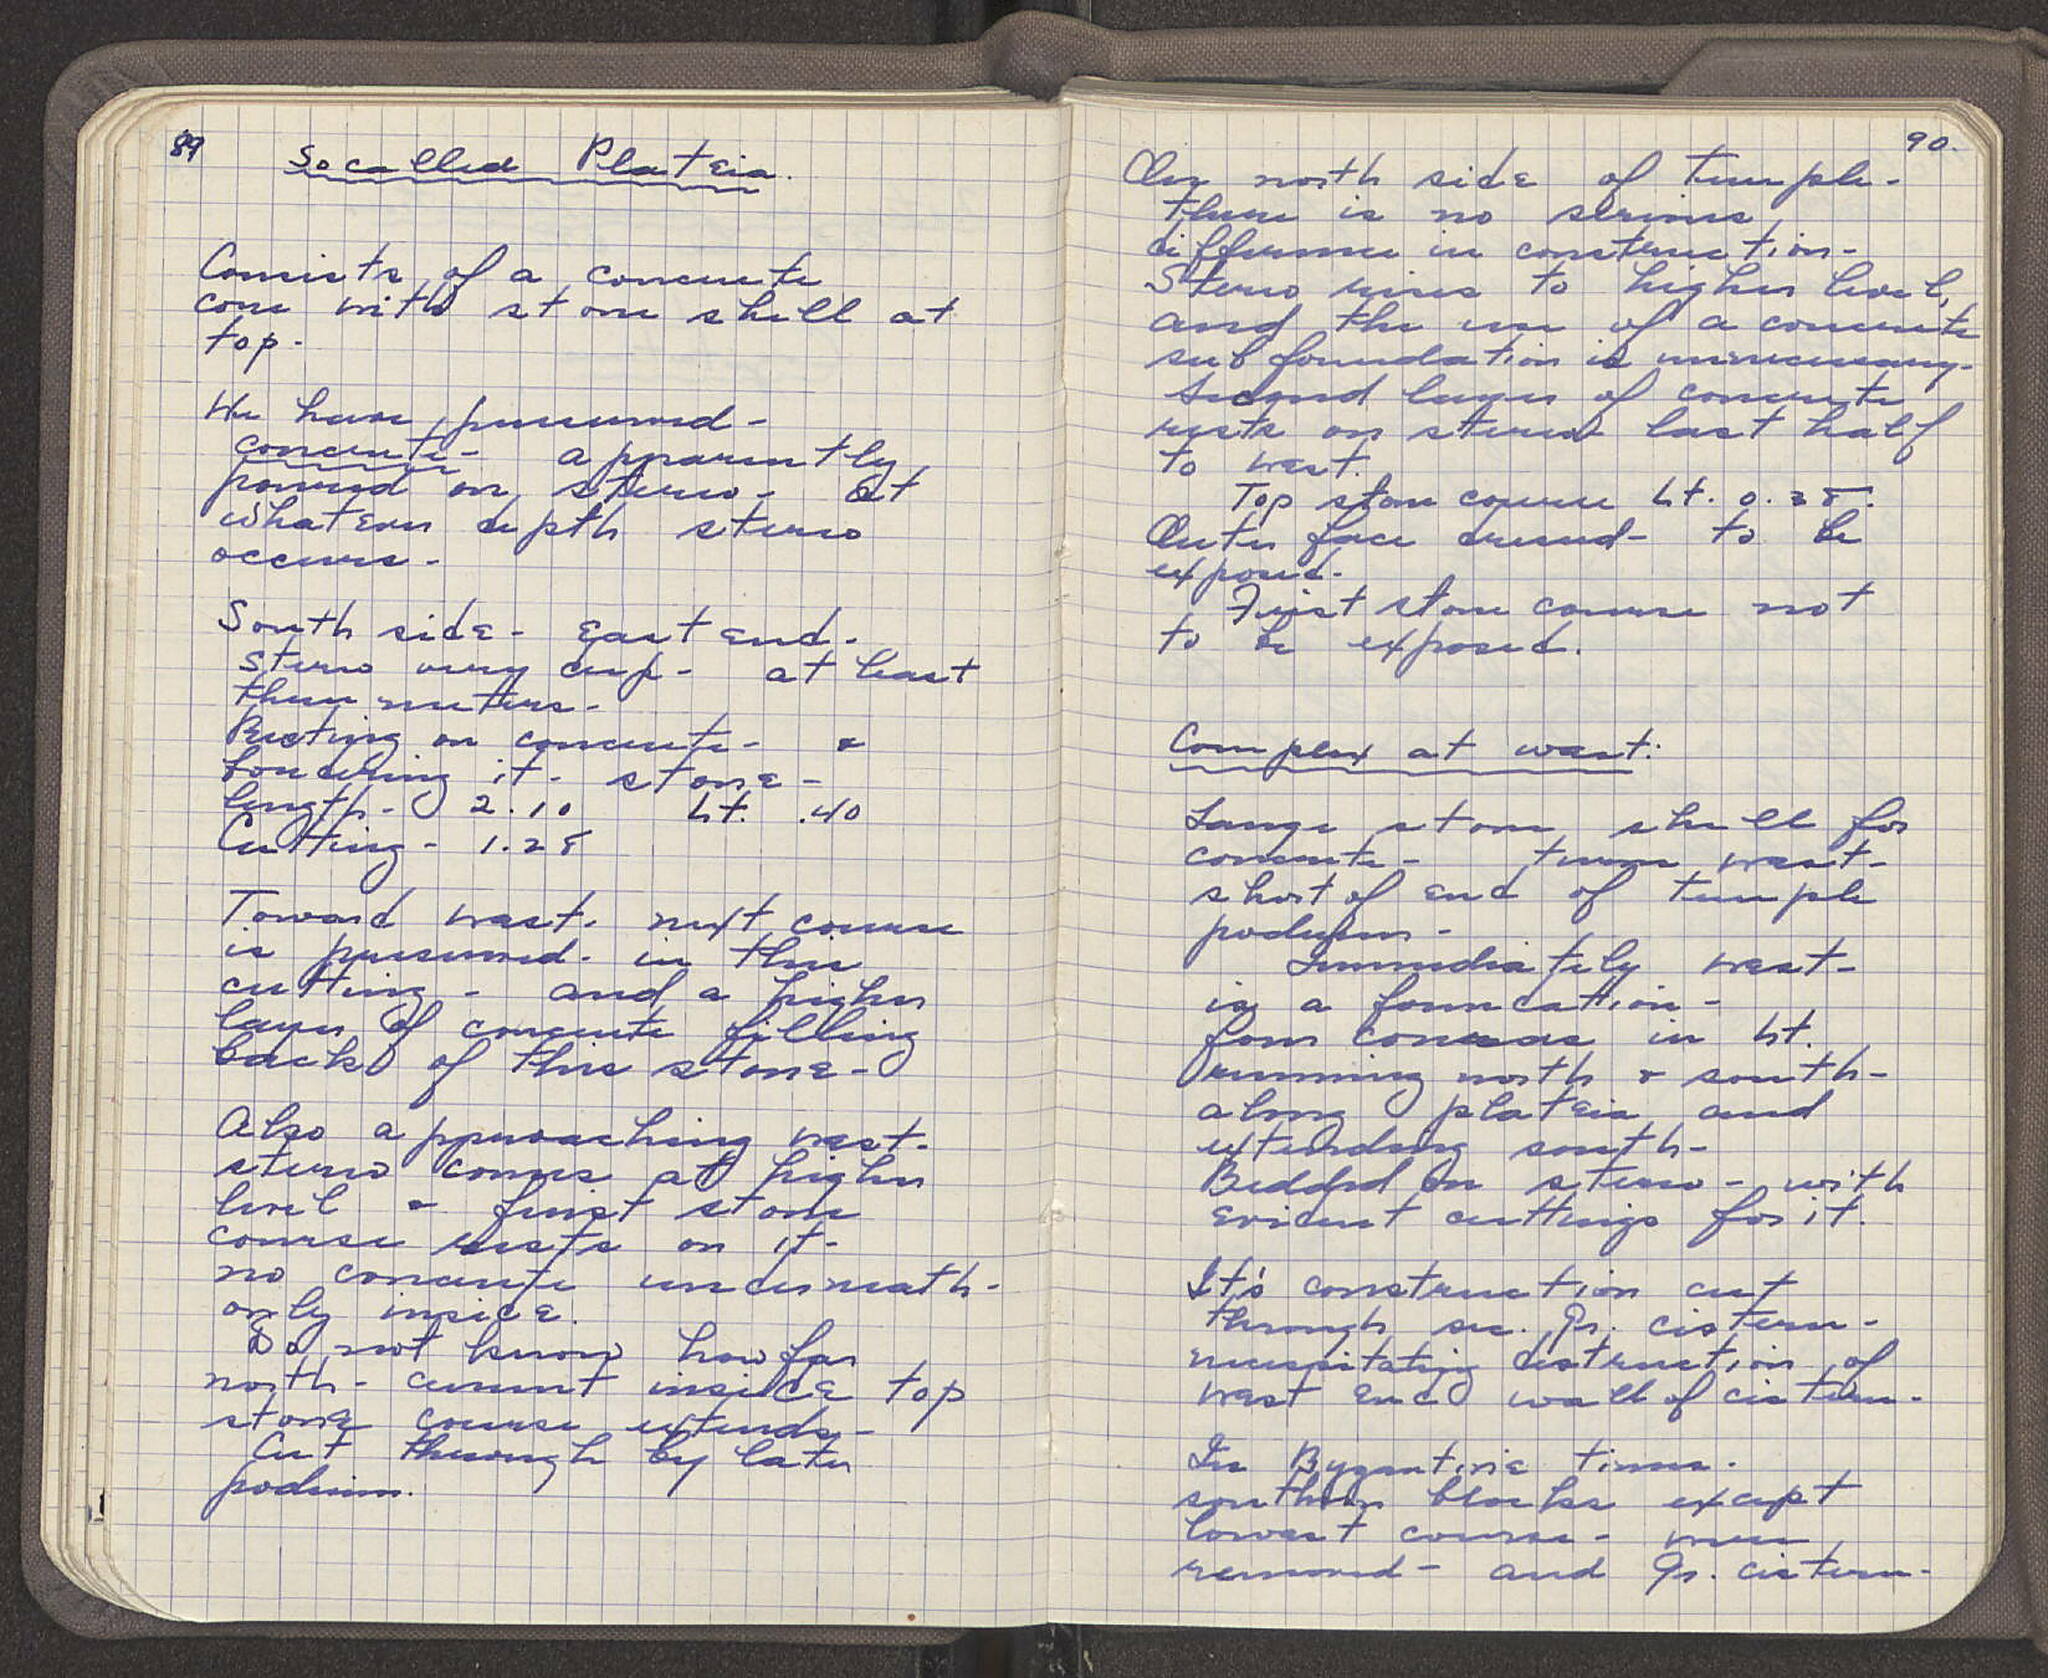 89
So called Plateia.
Consists of a concrete
core with stone shell at
top.
We have preserved -
concrete - apparently
poured on stereo - at
whatever depth stereo
occurs -
South side - East end -
stereo very deep - at least
three meters -
Resting on concrete - &
bordering it - stone -
length - 2.10 ht. .40
Cutting - 1.28
Toward west. next course
is preserved - in this
cutting - and a higher
layer of concrete filling
back of this stone -
Also approaching west -
stereo comes at higher
level & first stone
course rests on it -
no concrete underneath -
only inside.
Do not know how far
north - cement inside top
stone course extends -
Cut through by later
podium.
90.
On north side of temple -
there is no serious
difference in construction -
Stereo rises to higher level,
and the use of a concrete
sub foundation is unnecessary -
Second layer of concrete
rests on stereo last half
to west.
Top stone course ht. 0.38.
Outer face dressed - to be
exposed.
First stone course not
to be exposed.
Complex at west:
Large stone shell for
concrete - turns west -
short of end of temple
podium -
Immediately west -
is a foundation -
four courses in ht.
running north & south -
along plateia and
extending south -
Bedded on stereo - with
evident cuttings for it.
It's construction cut
through sec. Gr. cistern -
necessitating destruction of
west end wall of cistern.
In Byzantine times -
southern blocks except
lowest course - were
removed - and Gr. cistern -